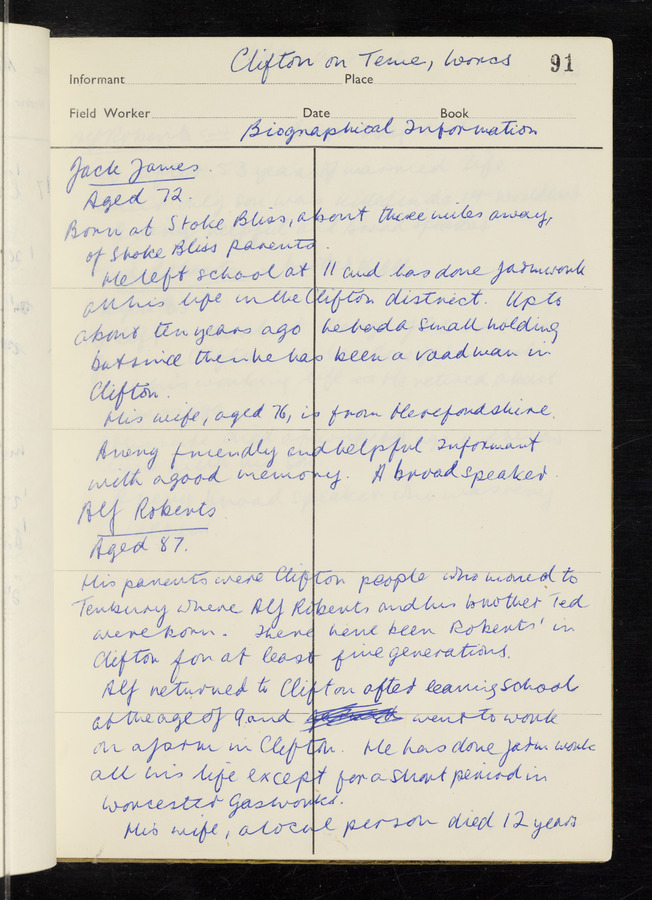 Clifton on Teme, Worcs 91
Informant Place
Field Worker Date Book
Biographical Information
Jack James.
Aged 72.
Born at Stoke Bliss, about three miles away,
of Stoke Bliss parents.
He left school at 11 and has done farmwork
all his life in the Clifton district. Up to
about ten years ago he had a small holding
but since then he has been a roadman in
Clifton.
His wife, aged 76, is from Herefordshire.
A very friendly and helpful informant
with a good memory. A broad speaker.
Alf Roberts
Aged 87.
His parents were Clifton people who moved to
Tenbury where Alf Roberts and his brother Ted
were born. There have been Roberts' in
Clifton for at least five generations.
Alf returned to Clifton after leaving school
at the age of 9 and went to work
on a farm in Clifton. He has done farm work
all his life except for a short period in
Worcester Gasworks.
His wife, a local person died 12 years